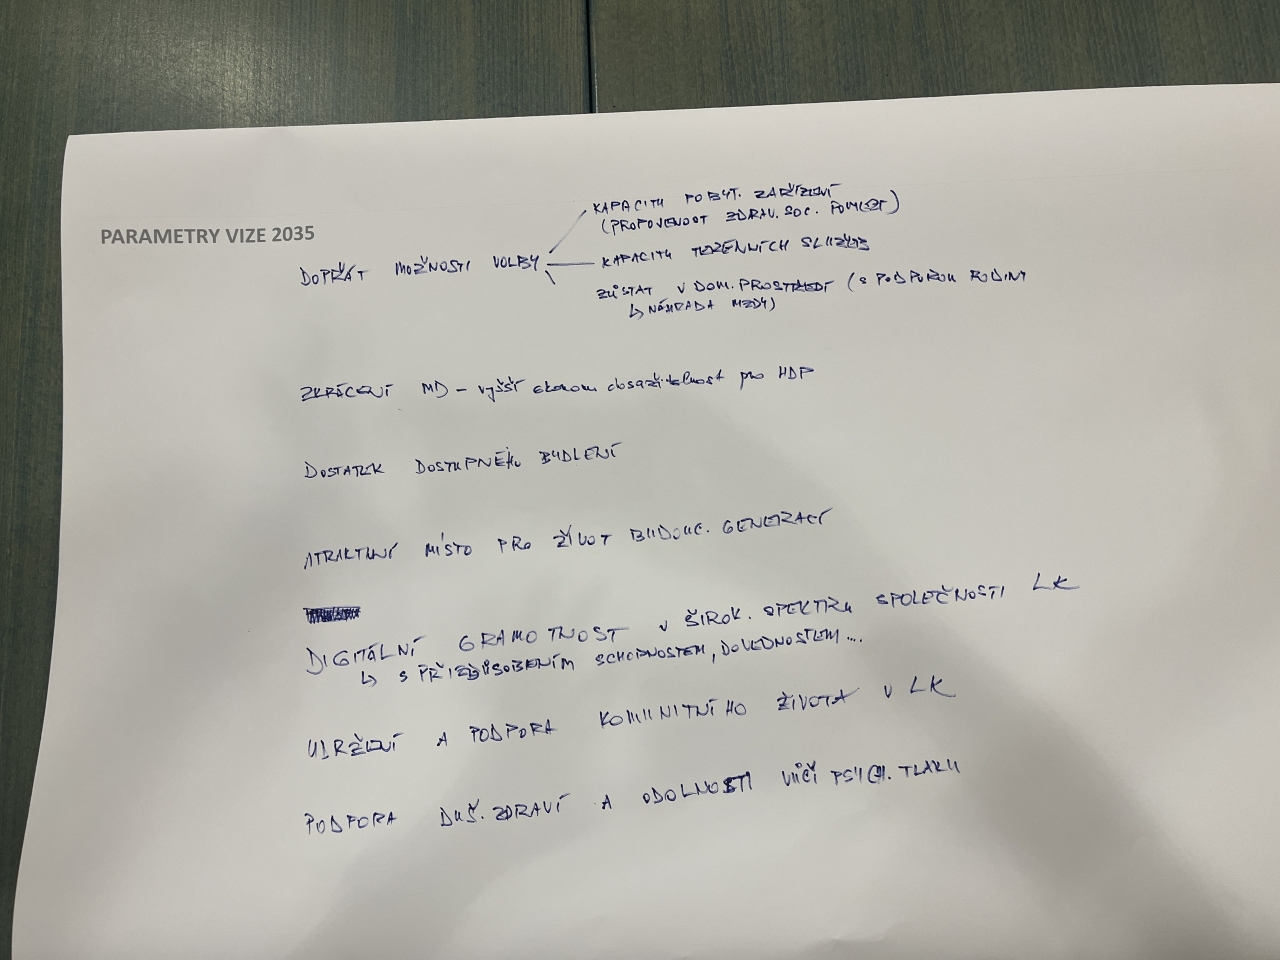 PARAMETRY VIZE 2035
DOPŘÁT MOŽNOSTI VOLBY
KAPACITU POBYT. ZAŘÍZENÍ
(PROPOJENOST ZDRAV. SOC. POMEZÍ)
KAPACITU TERÉNNÍCH SLUŽEB
ZŮSTAT V DOM. PROSTŘEDÍ (S PODPOROU RODINY
↳ NÁHRADA MZDY)
ZKRÁCENÍ MD – vyšší ekonom dosažitelnost pro HDP
DOSTATEK DOSTUPNÉHO BYDLENÍ
ATRAKTIVNÍ MÍSTO PRO ŽIVOT BUDOUC. GENERACÍ
DIGITÁLNÍ GRAMOTNOST V ŠIROK. SPEKTRU SPOLEČNOSTI LK
↳ S PŘIZPŮSOBENÍM SCHOPNOSTEM, DOVEDNOSTEM....
UDRŽENÍ A PODPORA KOMUNITNÍHO ŽIVOTA V LK
PODPORA DUŠ. ZDRAVÍ A ODOLNOSTI VŮČI PSYCH. TLAKU